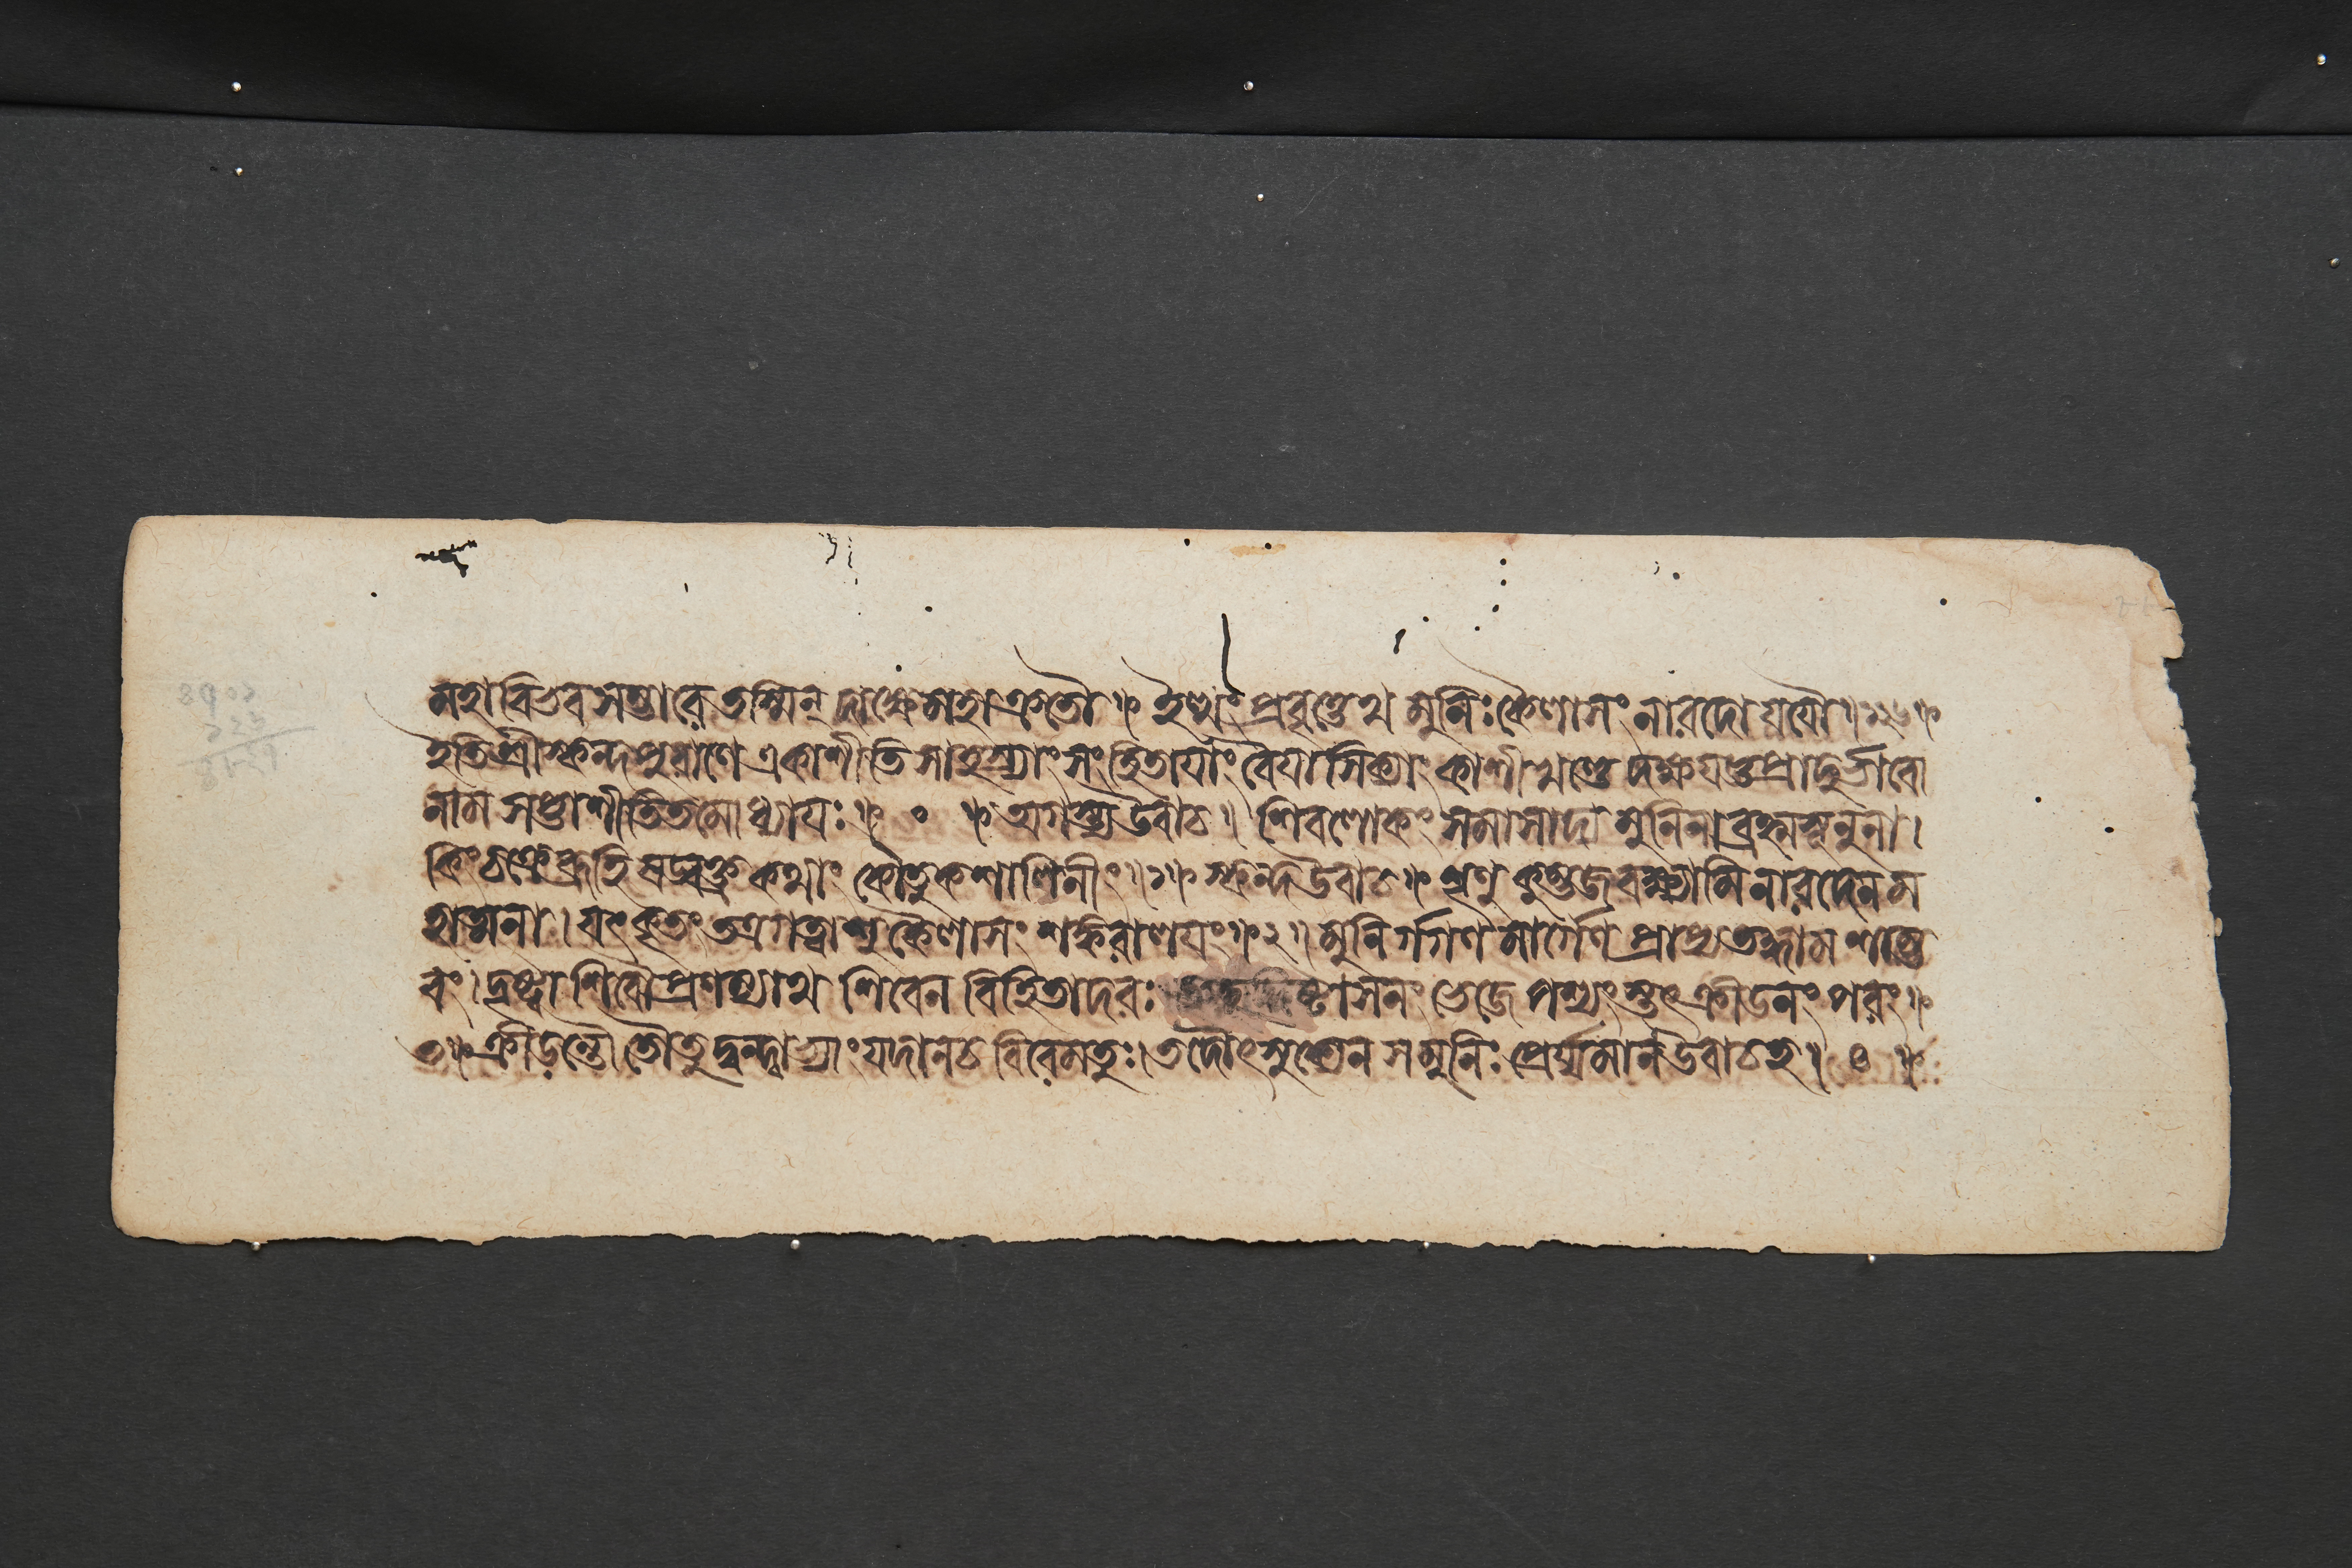 মহাবিভবসম্ভারে তস্মিন্ দাক্ষে মহাক্রতৌ॥ ইত্থং প্রবৃত্তেথ মুনিঃ কৈলাসং নারদো যযৌ॥১১৬॥
ইতি শ্রীস্কন্দপুরাণে একাশীতিসাহস্র্যাং সংহিতাযাং বৈযাসিক্যাং কাশীখণ্ডে দক্ষযজ্ঞপ্রাদুর্ভাবো
নাম সপ্তাশীতিতমোধ্যাযঃ॥ ০ ॥ অগস্ত্য উবাচ॥ শিবলোকং সমাসাদ্য মুনিনা ব্রহ্মসূনুনা।
কিং চক্রে ব্রূহি ষড্বক্ত্র কথাং কৌতুকশালিনীং॥১॥ স্কন্দ উবাচ॥ শৃণু কুম্ভজ বক্ষ্যামি নারদেন ম
হাত্মনা। যৎ কৃতং তত্র গত্বাশু কৈলাসং শঙ্করালযং॥২॥ মুনির্গগণমার্গেণ প্রাপ্য তদ্ধাম শাম্ভ
বং। দৃষ্ট্বা শিবৌ প্রণম্যাথ শিবেন বিহিতাদরঃ তদুদ্দিষ্টাসনং ভেজে পশ্যংস্তৎ ক্রীডনং পরং॥
৩॥ ক্রীডন্তৌ তৌ তু দ্বন্দ্বাভ্যাং যদা ন চ বিরেমতুঃ। তদৌৎসুক্যেন স মুনিঃ প্রের্য্যমান উবাচ হ॥ ৪ ॥